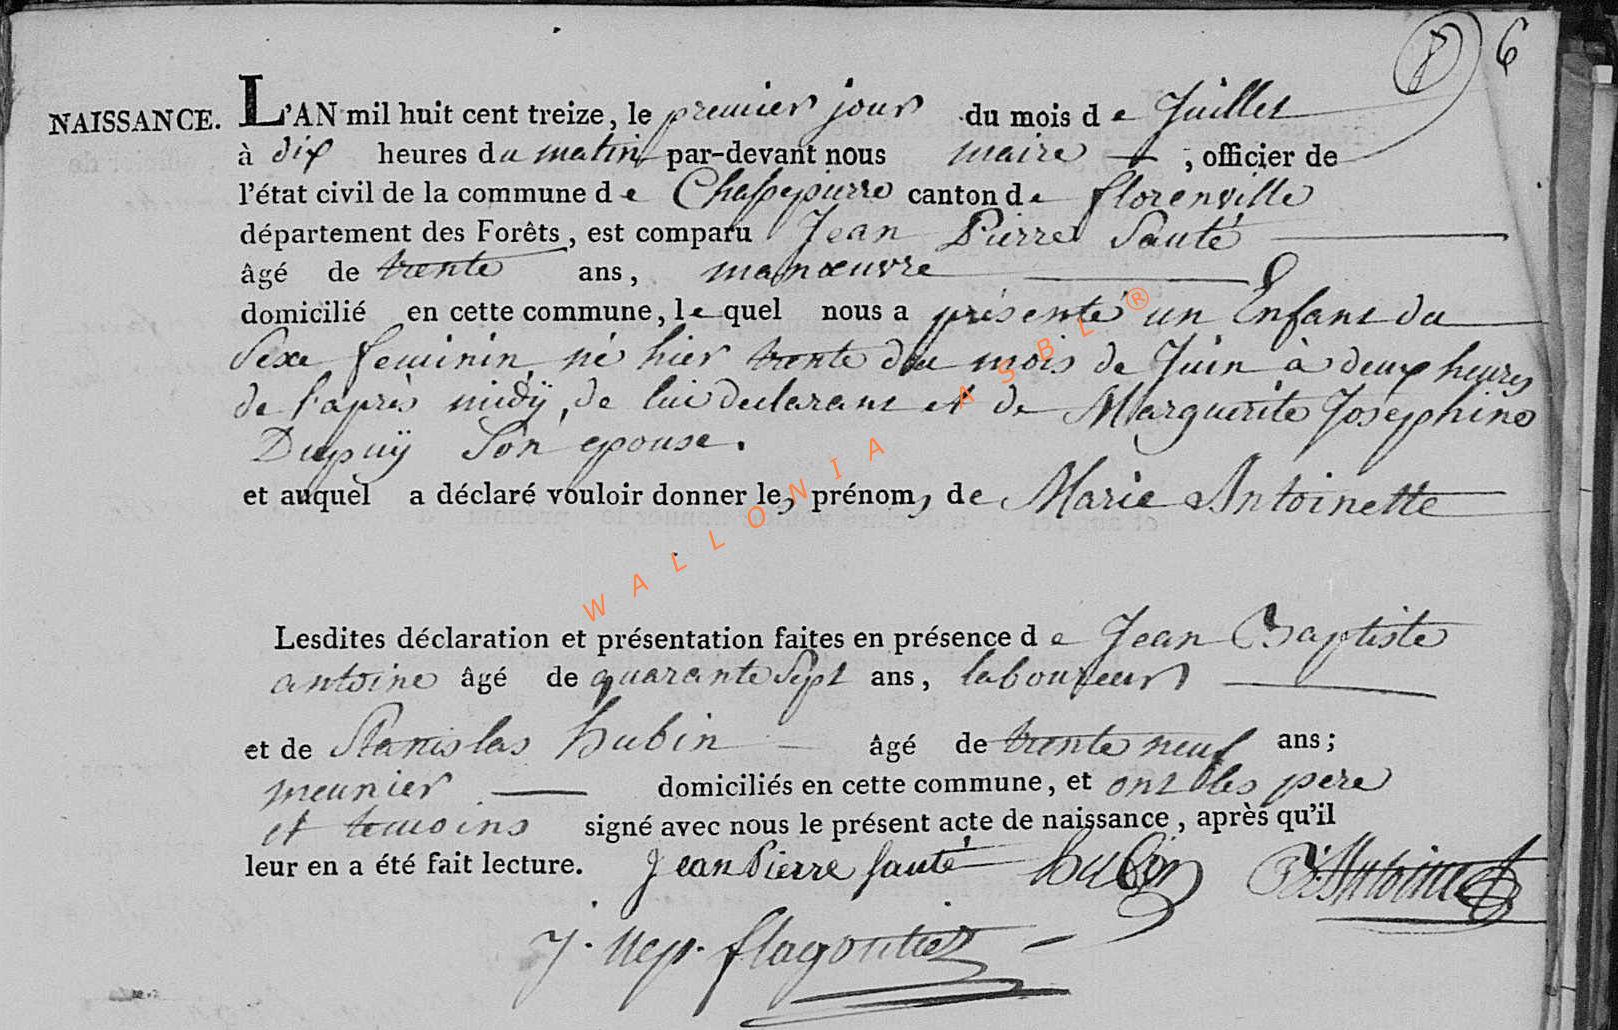 8 6
NAISSANCE. L'AN mil huit cent treize, le premier jour du mois de Juillet
à dix heures du matin par-devant nous maire, officier de
l'état civil de la commune de Chassepierre canton de florenville
département des Forêts, est comparu Jean Pierre Sauté
âgé de trente ans, manœuvre
domicilié en cette commune, lequel nous a présenté un Enfant du
Sexe feminin, né hier trente du mois de Juin à deux heures
de l'après midÿ, de lui declarant et de Marguerite Josephine
Dupuÿ Son epouse.
et auquel a déclaré vouloir donner les prénoms de Marie Antoinette
Lesdites déclaration et présentation faites en présence de Jean Baptiste
antoine âgé de quarante Sept ans, laboureur
et de Stanislas hubin âgé de trente neuf ans;
meunier domiciliés en cette commune, et ont les pere
et temoins signé avec nous le présent acte de naissance, après qu'il
leur en a été fait lecture. Jean Pierre Sauté hubin Antoine
J. Nep. flagontier
WALLONIA ASBL ®